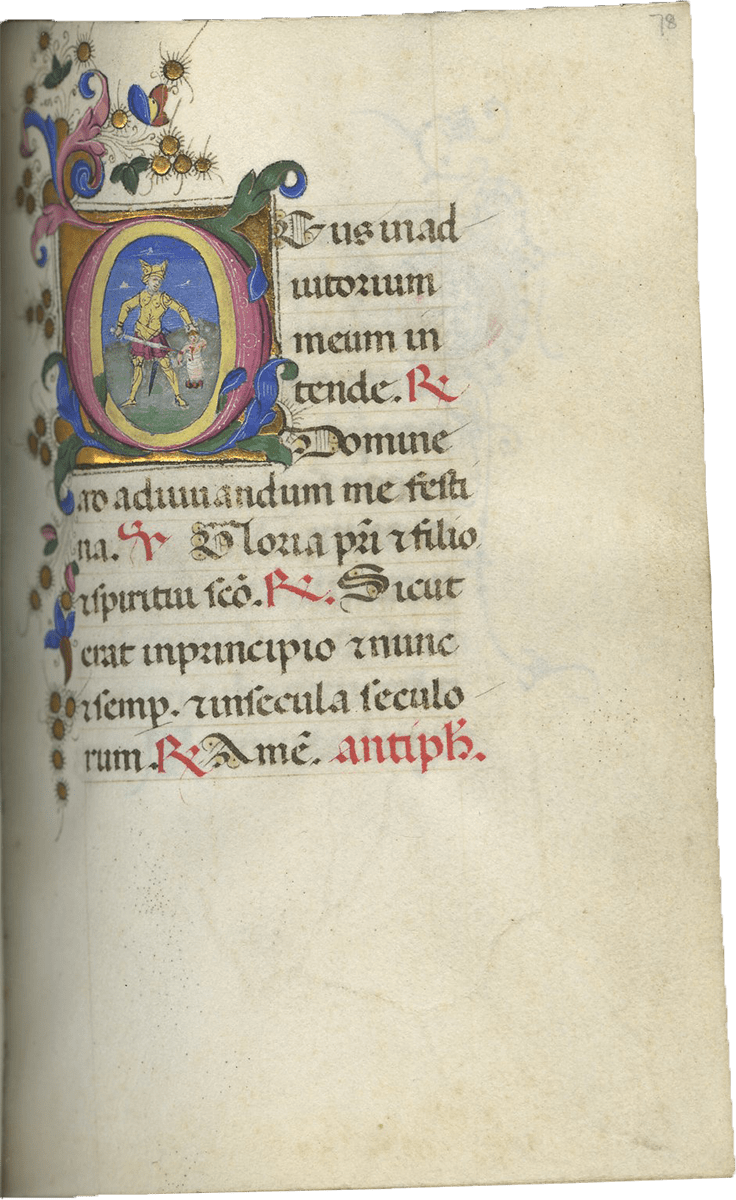 78
DEus in ad
iutorium
meum in
tende. ℟
Domine
ad adiuuandum me festi
na. ℣ Gloria pr̃i ⁊ filio
⁊ spiritui sc̃o. ℟. Sicut
erat in principio ⁊ nunc
⁊ semp̱. ⁊ in secula seculo
rum. ℟ Amẽ. antiph̃.